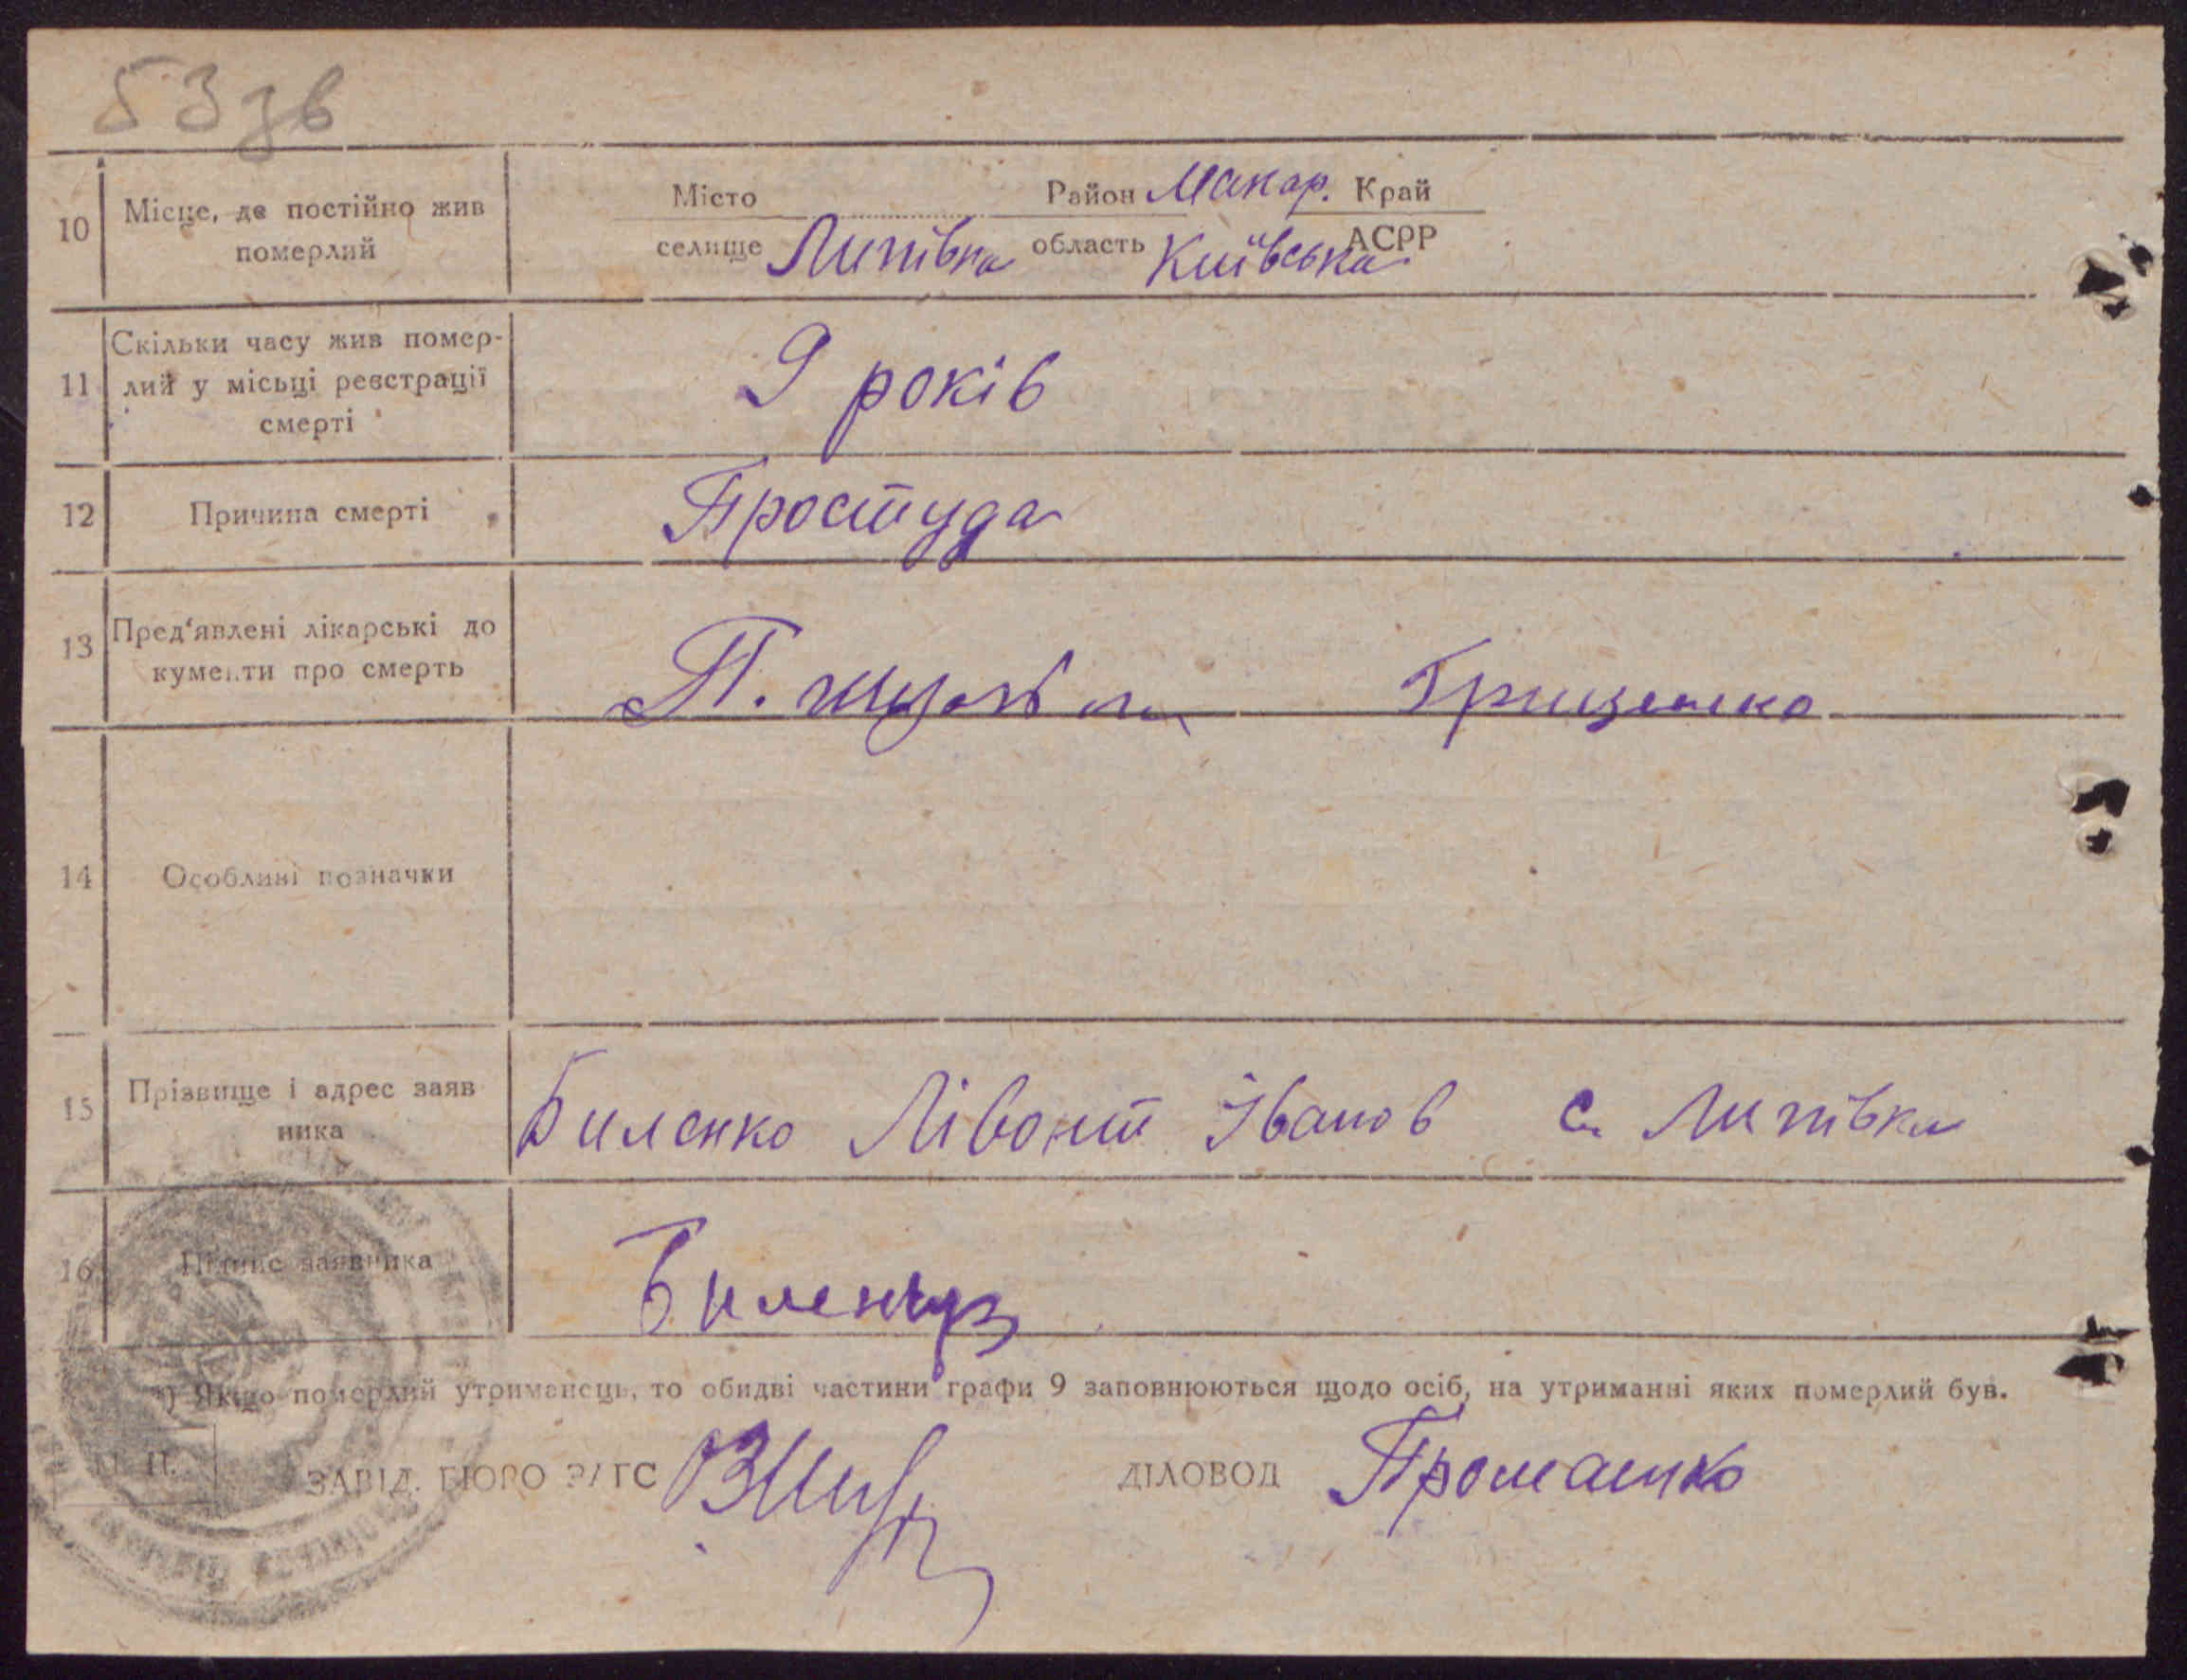 53 зв
10 Місце, де постійно жив померлий
Місто Район Макар. Край
селище Липівка область Київська АСРР
11 Скільки часу жив помер-
лий у місьці реєстрації
смерті
9 років
12 Причина смерті Простуда
13 Пред'явлені лікарські до
кументи про смерть
П. Гриценко
14 Особливі позначки
15 Прізвище і адрес заяв
ника
Биленко Лівонт Іванов с. Липівка
16 Підпис заявника
*) Якщо померлий утриманець, то обидві частини графи 9 заповнюються щодо осіб, на утриманні яких померлий був.
М. П. ЗАВІД. БЮРО ЗАГС ДІЛОВОД